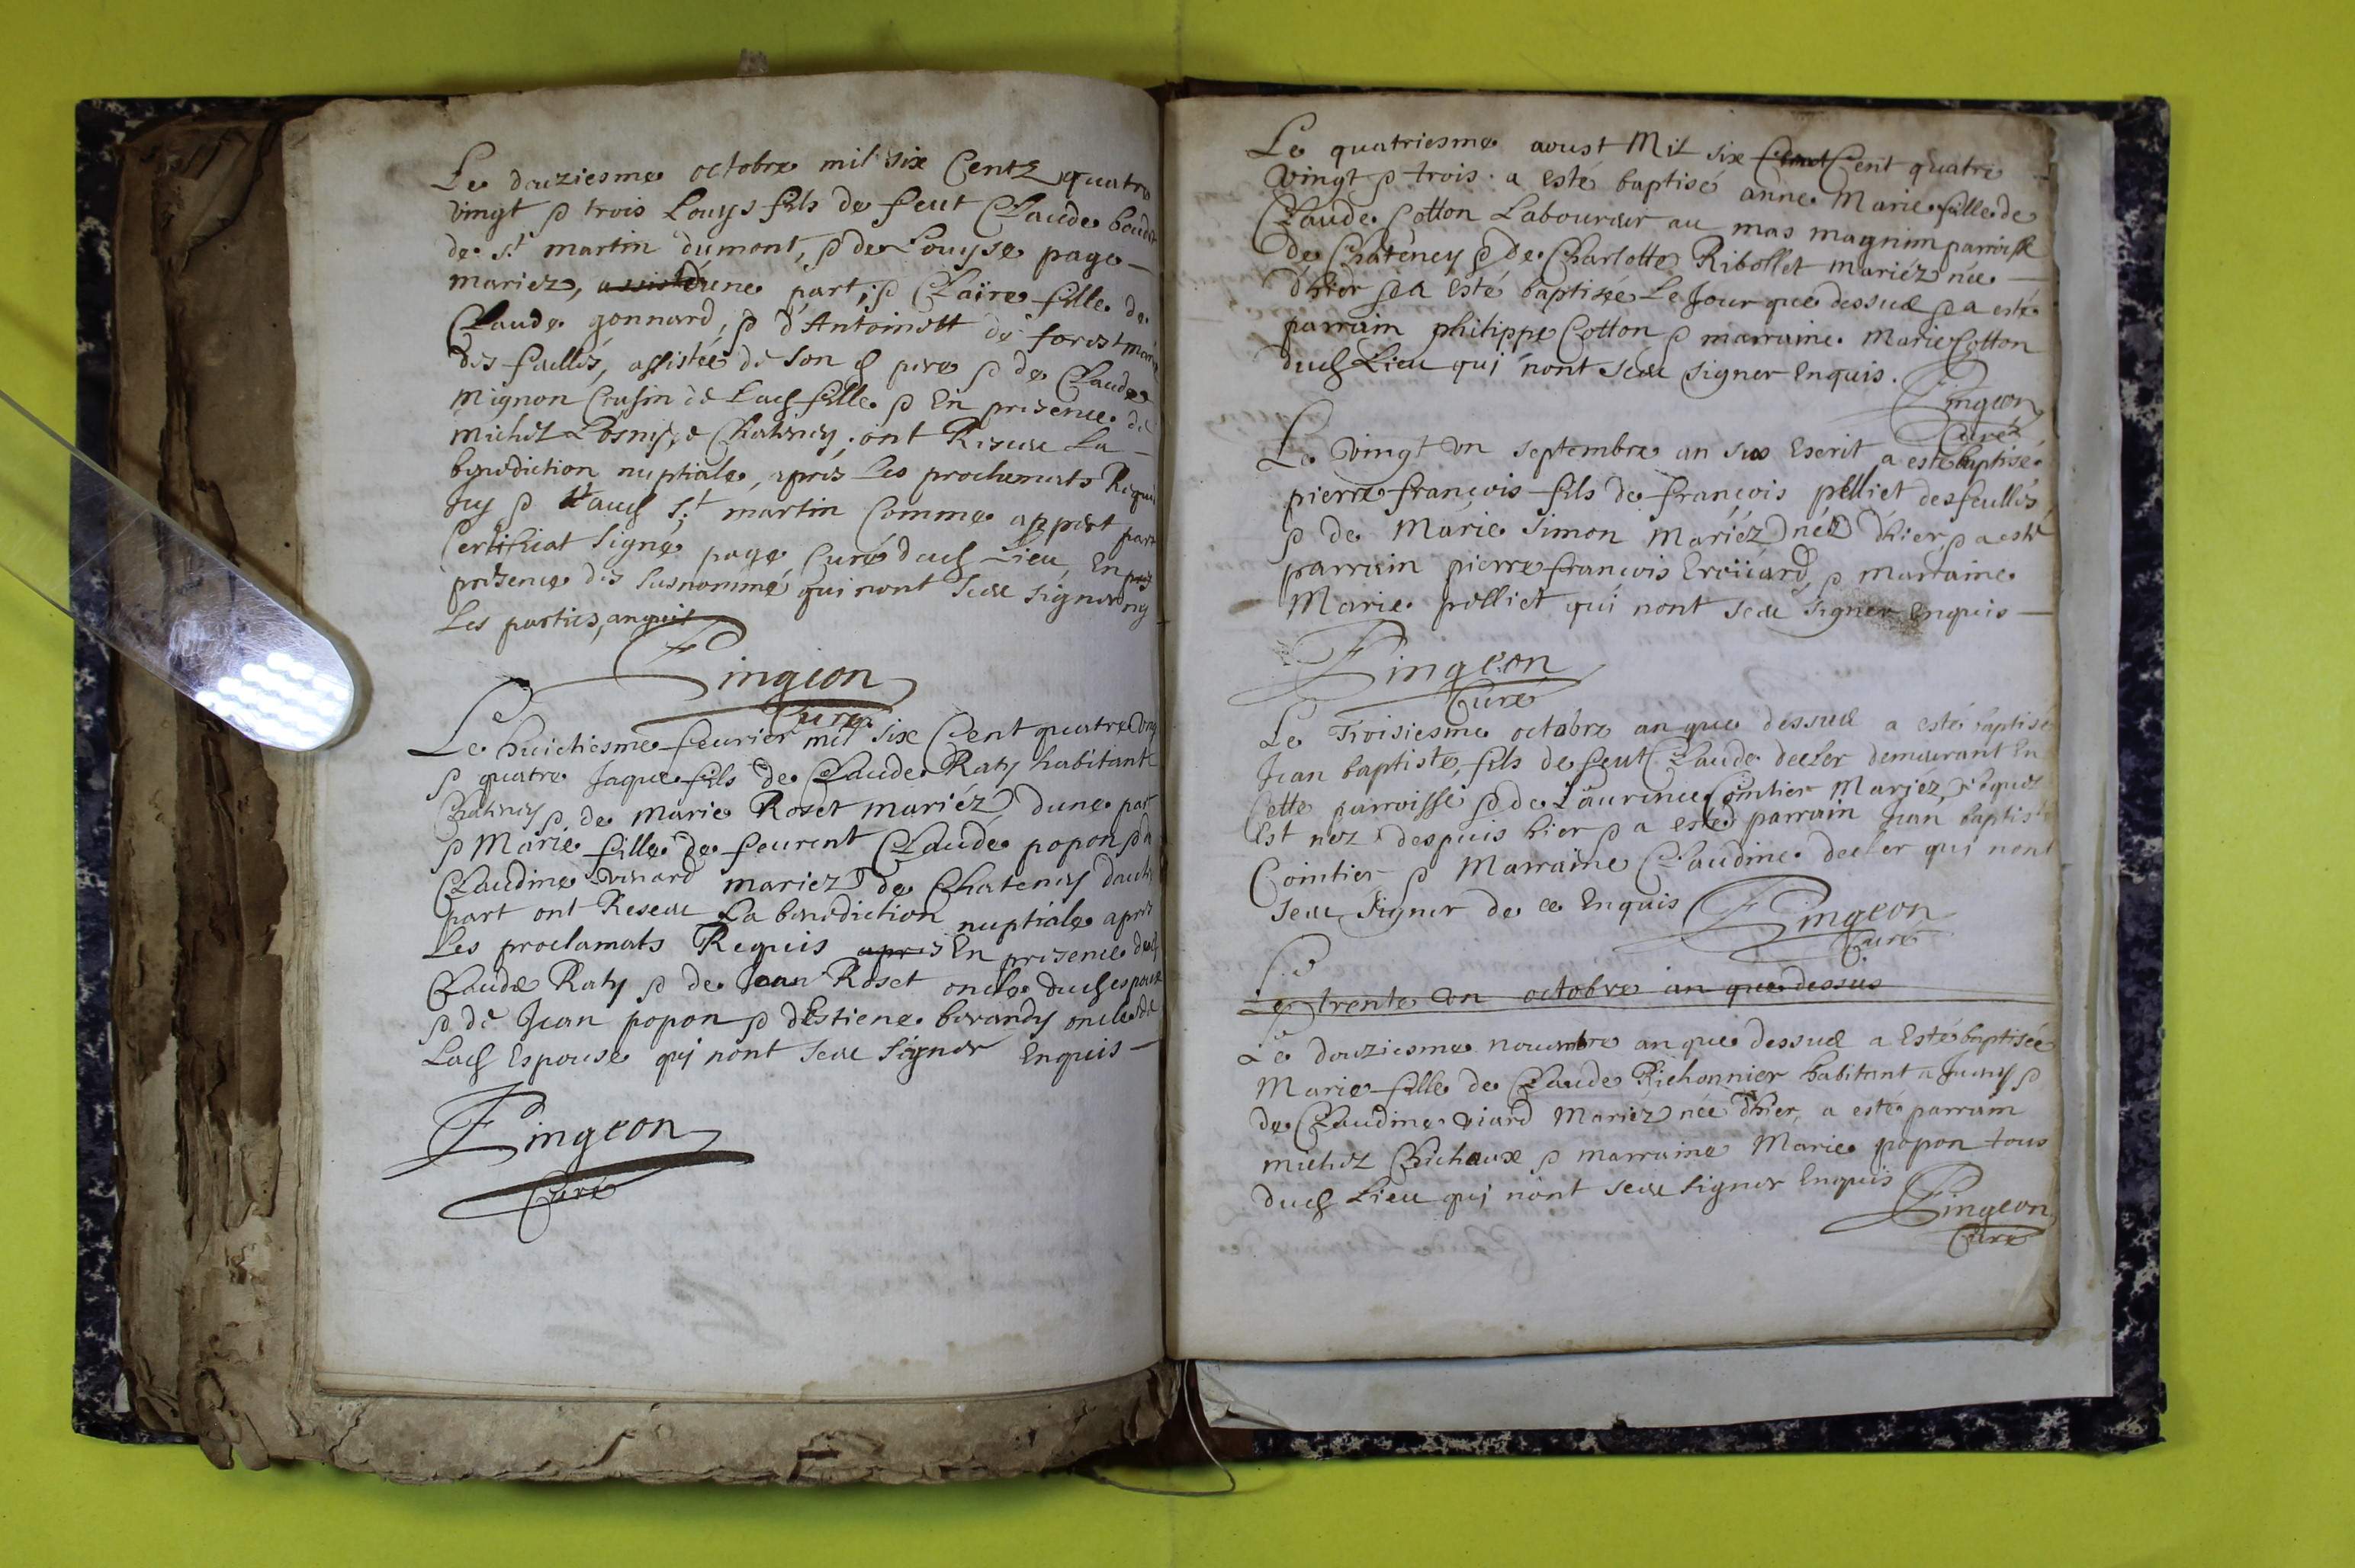 Le douziesme octobre mil six Centz quatre
vingt & trois Louys fils de feut Claude
de St martin dumont, & de Louyse page
mariez, assisté d'une part; & Claire fille de
Claude gonnard, & d'Antoinett de forest
des faulles, assistée de son d pere & de Claude
Mignon Cousin de Lad fille & En presence de
Michel & Chateney, ont Reseue La
benediction nuptiale, apres Les proclamats
Icy & aud St martin Comme appert par
Certificat signe page Curé dud Lieu, En
presence des susnommé qui nont seeu signer ny
Les parties, anquis
Pingeon
Curé
Le huictiesme feurier mil six Cent quatre
& quatre Jaque fils de Claude Raty habitant
Chateney & de Marie Roset mariéz dune part
& Marie fille de feurent Claude popon &
Claudine vinard mariez de Chateney
part ont Reseeu La benediction nuptiale apres
Les proclamats Requis apres En presence dud
Claude Raty & de Jean Roset oncle dud espoux
& de Jean popon & dEstiene borandy oncle de
Lad Espouse qui nont seeu signer Enquis
Pingeon
Curé
Le quatriesme aoust Mil six Cent Cent quatre
vingt & trois. a esté baptisé anne Marie fille de
Claude Cotton Laboureur au mas magnin parroisse
de Chateney & De Charlotte Ribollet mariéz née
d'hier & a esté baptisée Le Jour que dessus & a esté
parrain philippe Cotton & marraine Marie Cotton
dud Lieu qui nont seeu signer Enquis.
Pingeon
Curé
Le vingt un septembre an sus Escrit a esté baptisé
pierre françois fils de françois pelliet des feullés,
& de Marie Simon Mariéz néz d'hier, & a esté
parrain pierre françois Eroüard, & marraine
Marie pelliet qui nont seeu signer Enquis
Pingeon
Curé
Le Troisiesme octobre an que dessus a esté baptisé
Jean baptiste, fils de feut Claude decler demeurant En
Cette parroisse & de Laurence Cointier Mariéz,
Est nez despuis hier & a esté parrain Jean baptiste
Cointier & Marraine Claudine decler qui nont
seeu signer de ce Enquis
Pingeon
Curé
Le
Le trente un octobre an que dessus
Le douziesme nouembre an que dessus a Esté baptisée
Marie fille de Claude Richonnier habitant a &
de Claudine viard Mariéz née d'hier, a esté parrain
michel Chichoux & marraine Marie popon tous
dud Lieu qui nont seeu signer Enquis
Pingeon
Curé